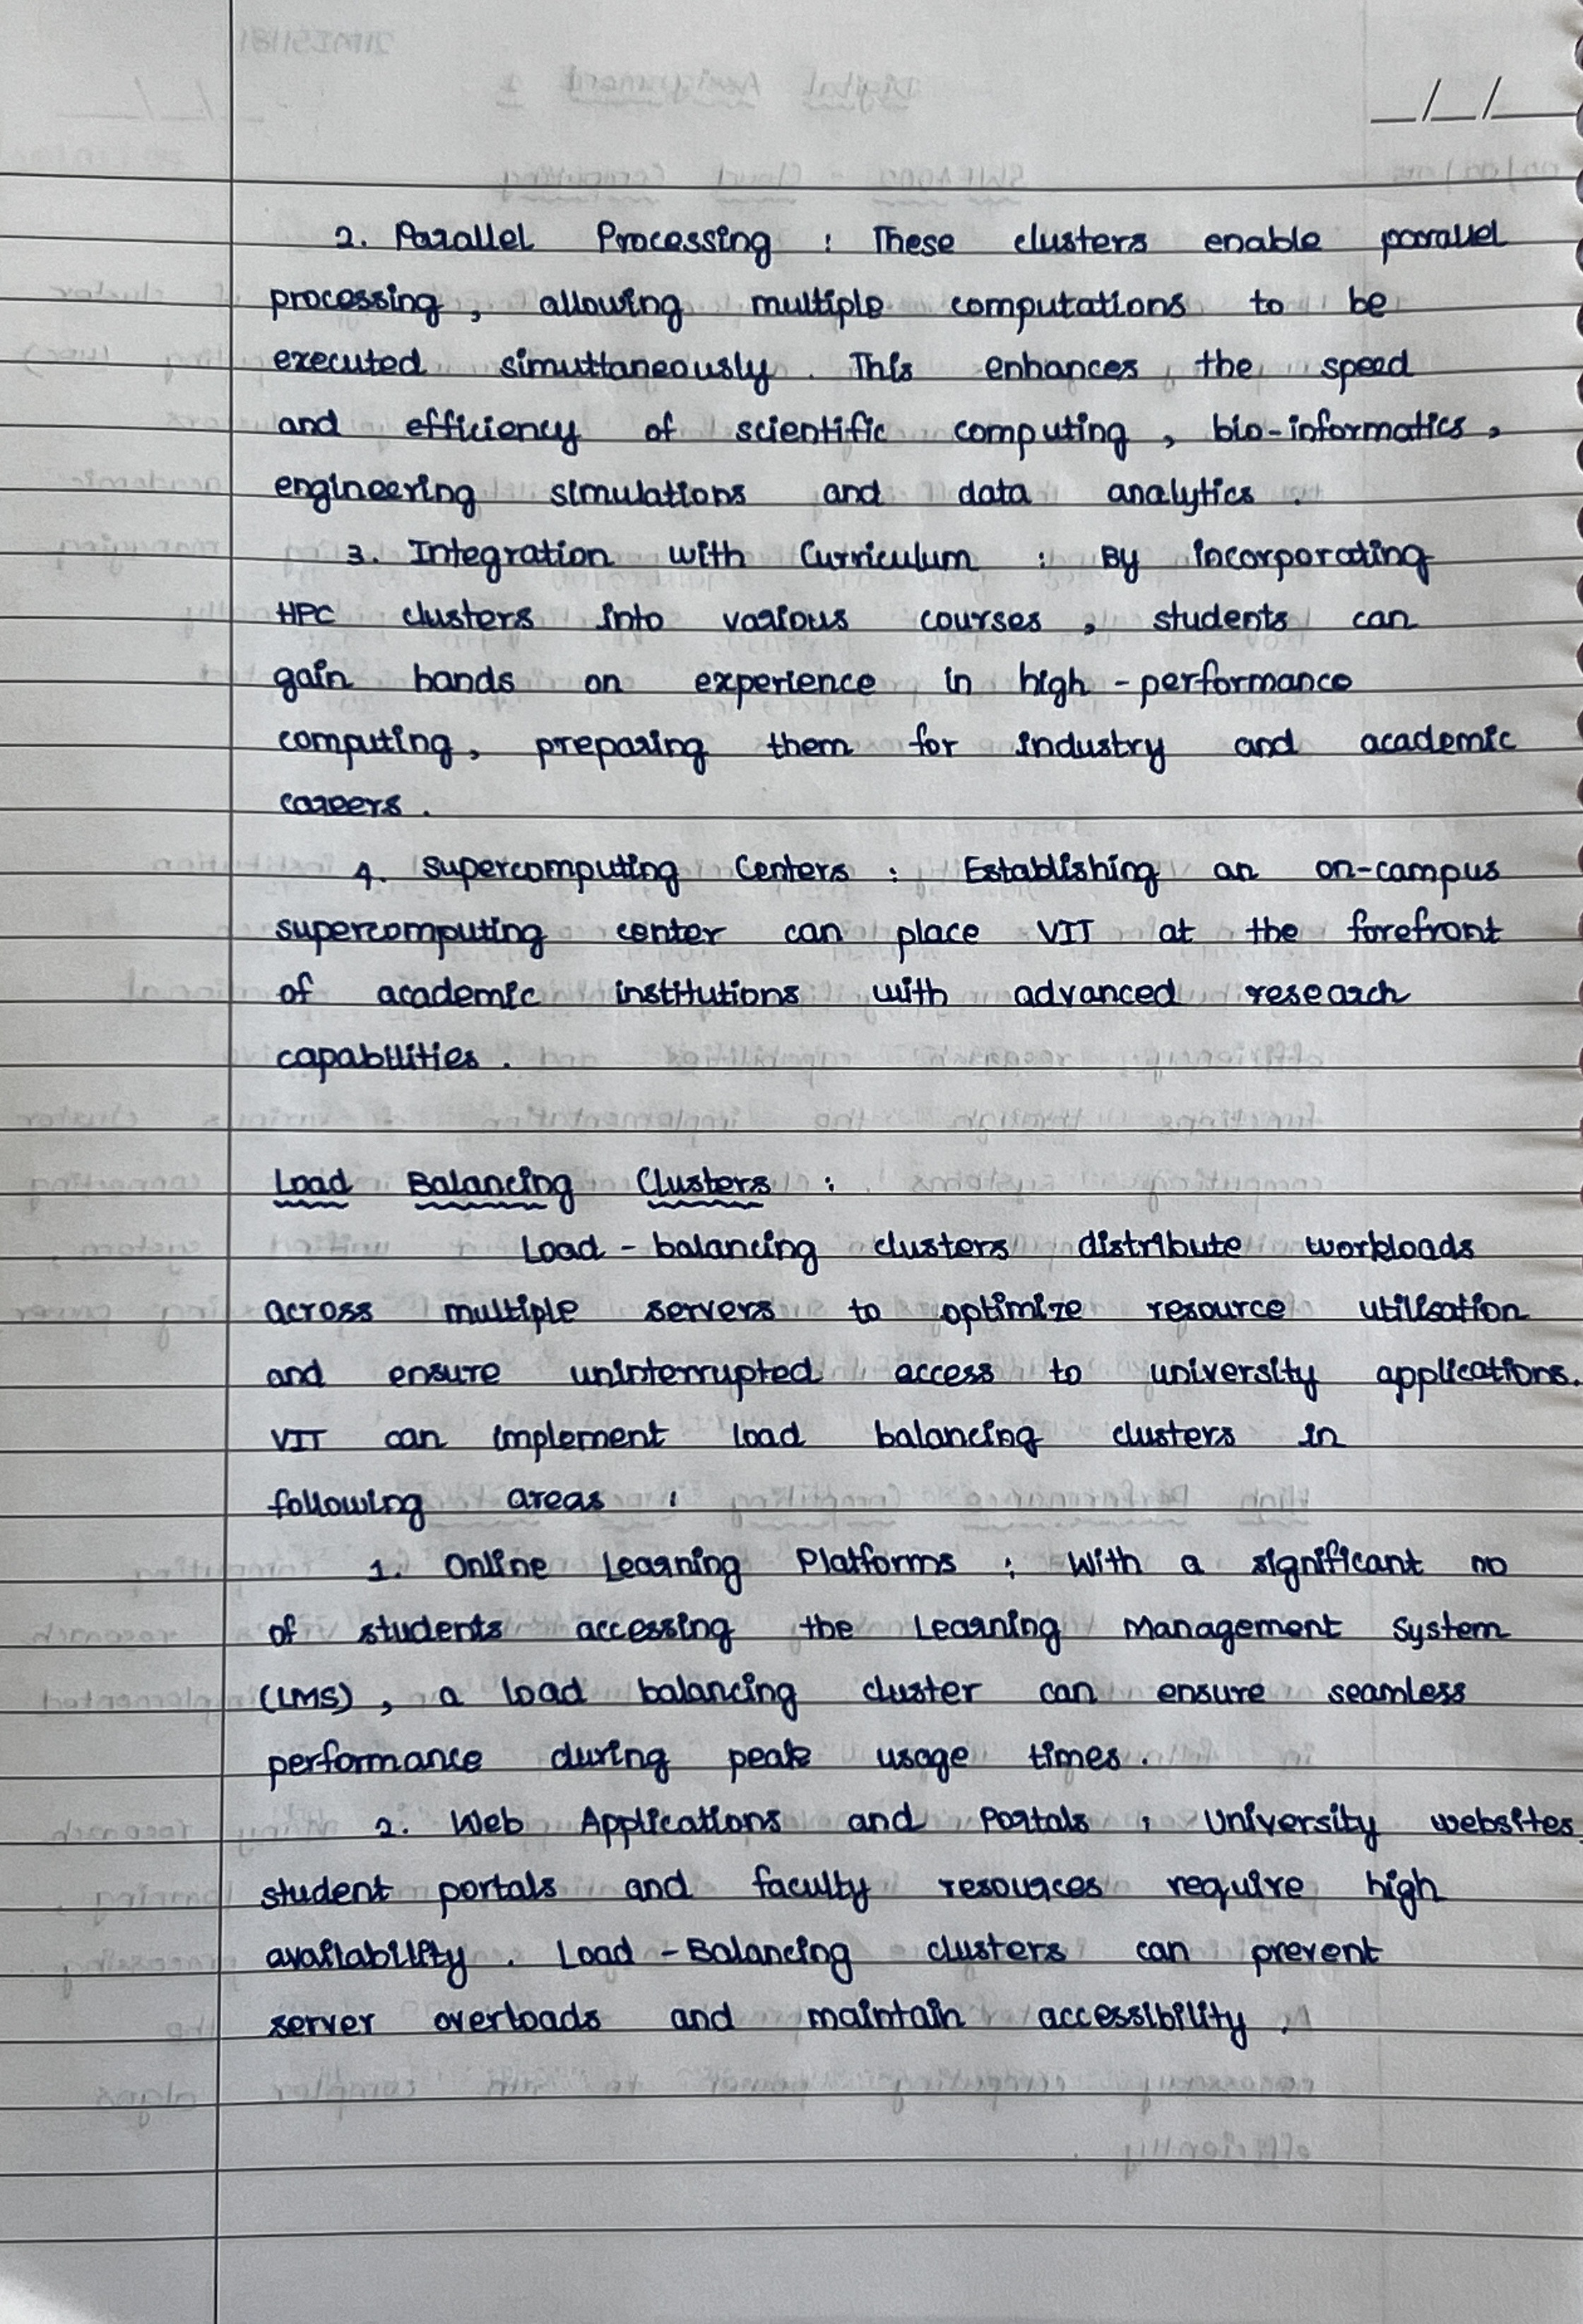 __/__/__
2. Parallel Processing : These clusters enable parallel
processing, allowing multiple computations to be
executed simuttaneously. This enhances the speed
and efficiency of scientific computing, bio-informatics,
engineering simulations and data analytics.
3. Integration with Curriculum : By incorporating
HPC clusters into various courses, students can
gain hands on experience in high-performance
computing, preparing them for industry and academic
careers.
4. Supercomputing Centers : Establishing an on-campus
supercomputing center can place VIT at the forefront
of academic institutions with advanced research
capabilities.
Load Balancing Clusters :
Load-balancing clusters distribute workloads
across multiple servers to optimize resource utilisation
and ensure uninterrupted access to university applications.
VIT can implement load balancing clusters in
following areas :
1. Online Learning Platforms : With a significant no
of students accessing the Learning Management System
(LMS), a load balancing cluster can ensure seamless
performance during peak usage times.
2. Web Applications and Portals : University websites,
student portals and faculty resources require high
availability. Load-Balancing clusters can prevent
server overloads and maintain accessibility.